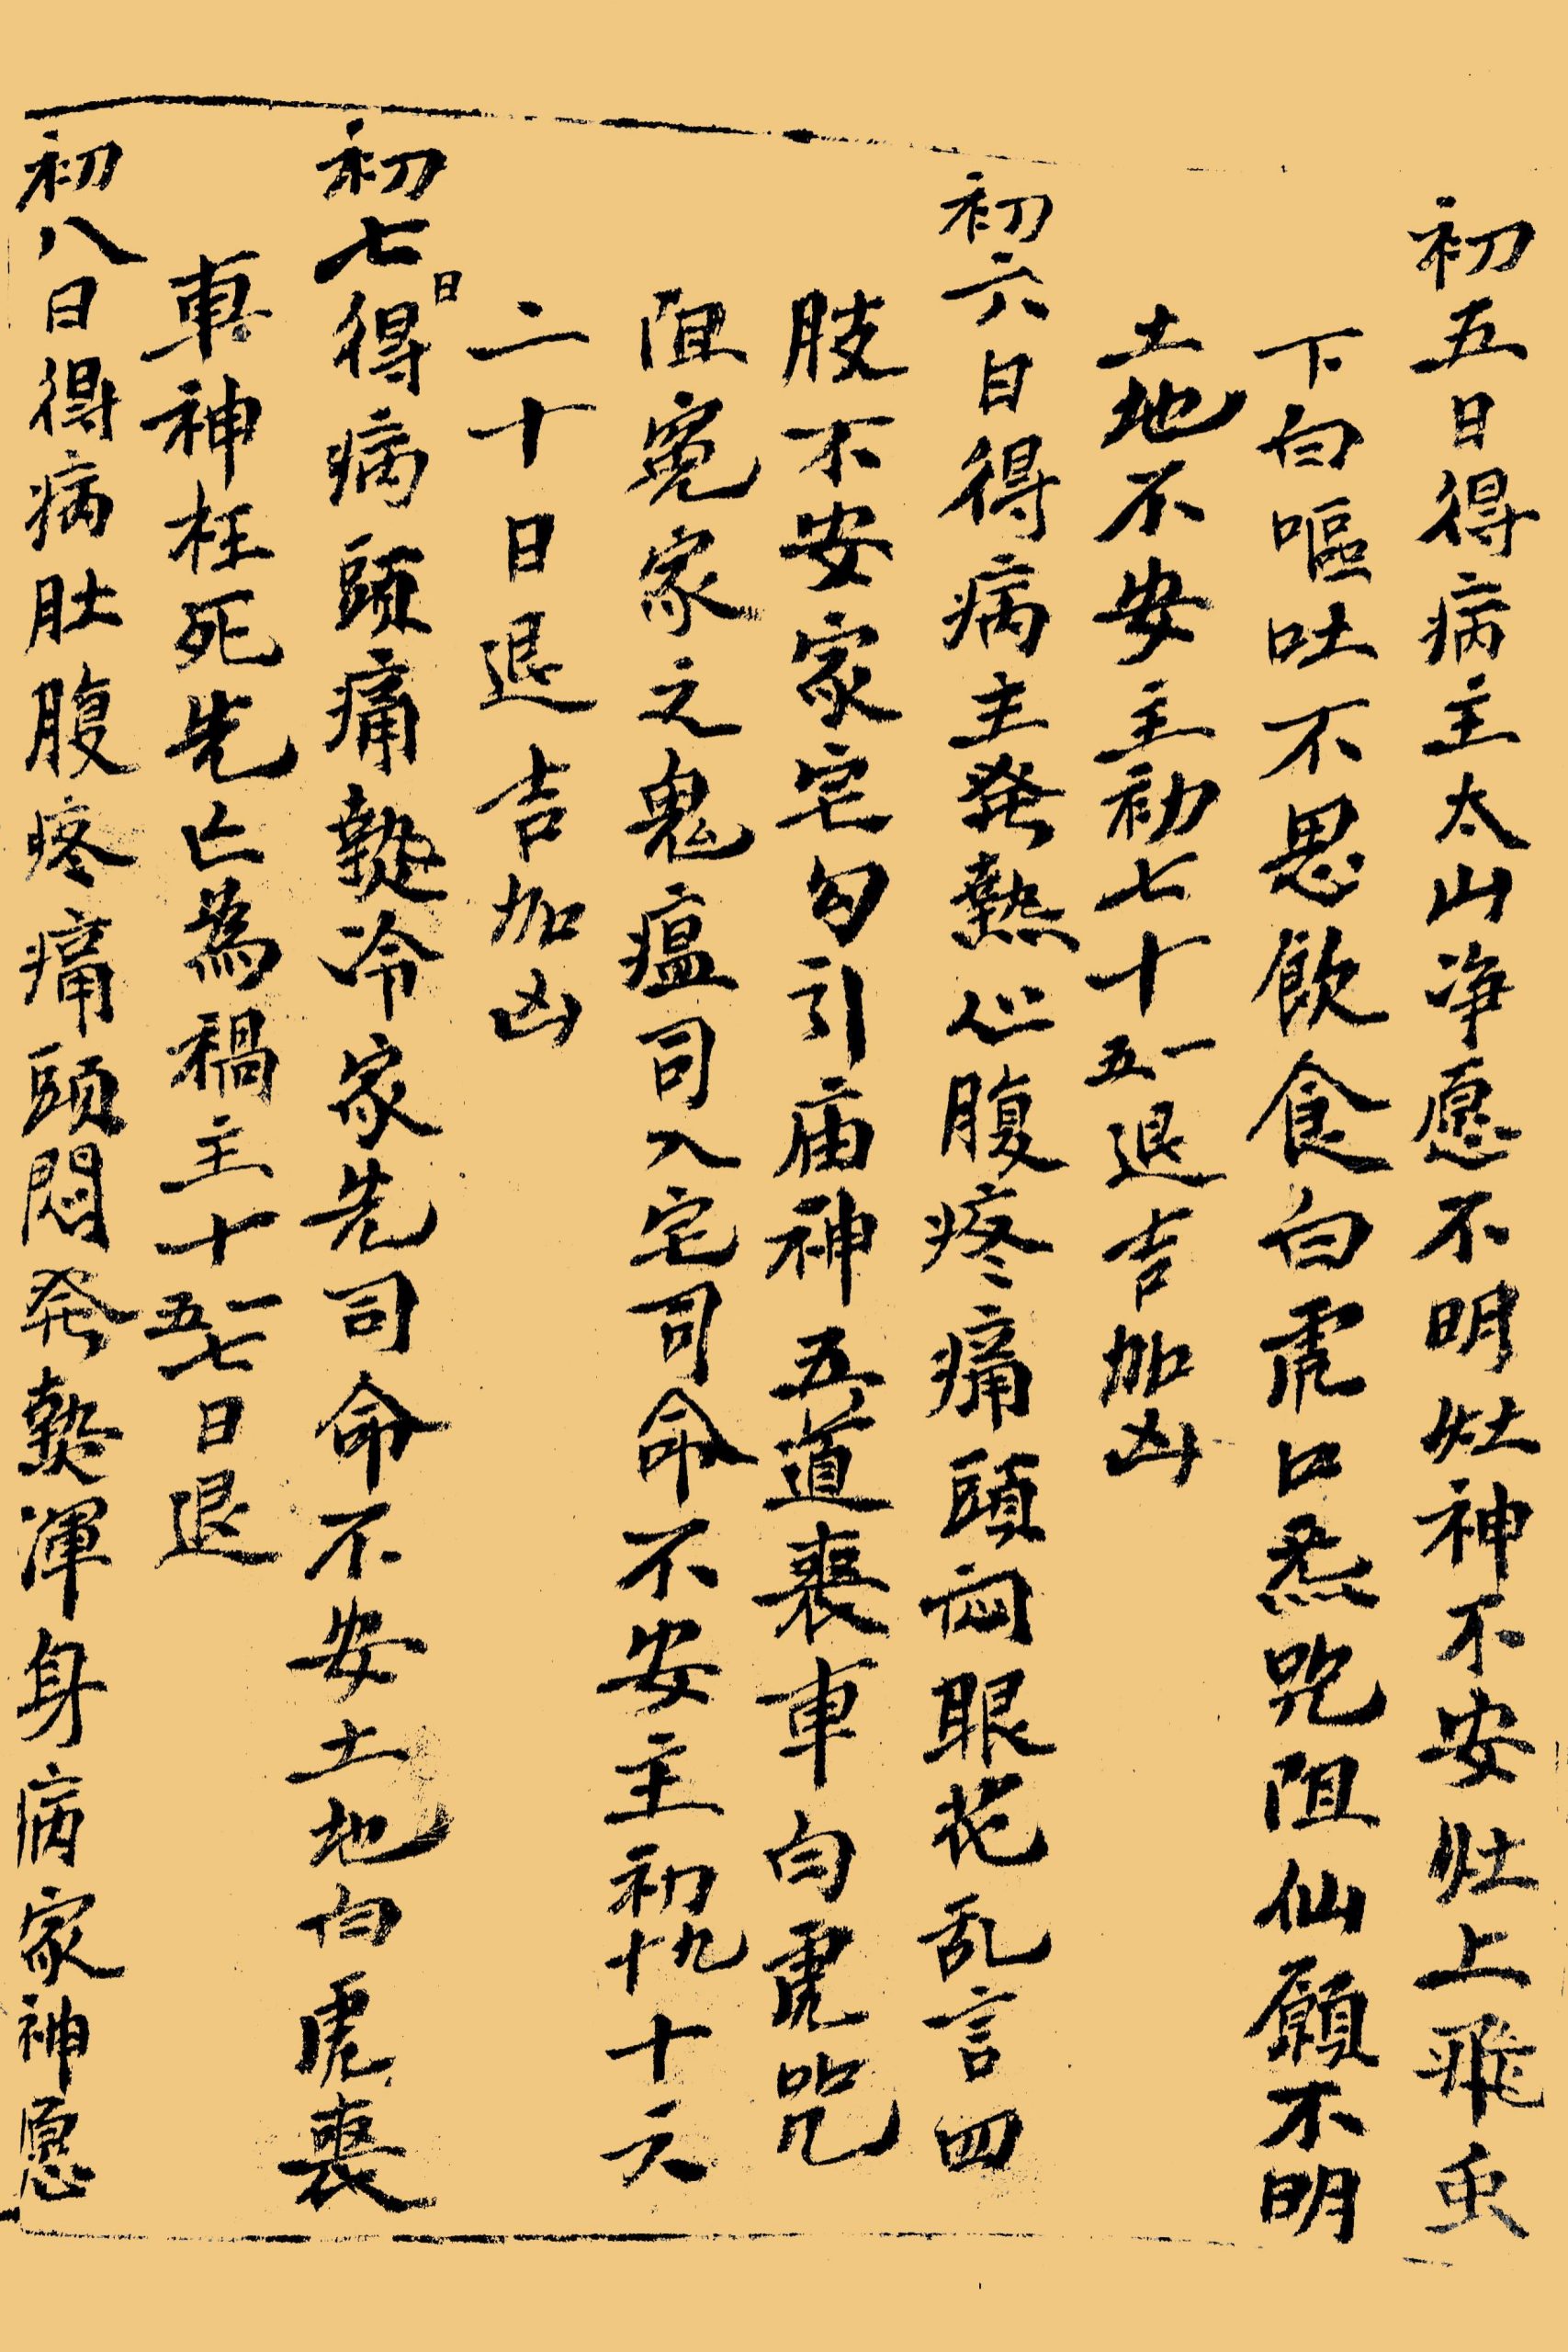 初五日得病主太山净愿不明灶神不安灶上飛虫
下白嘔吐不思飲食白虎口炁咒阻仙願不明
土地不安主初七十一五退吉加凶
初六日得病主発熱心腹疼痛頭悶眼花乱言四
肢不安家宅勾引庙神五道喪車白虎咒
阻冤家之鬼瘟司入宅司命不安主初九十十六
二十日退吉加凶
初七日得病頭痛熱冷家先司命不安土地白虎喪
車神枉死先亡為禍主十一五七日退
初八日得病肚腹疼痛頭悶発熱渾身病家神愿